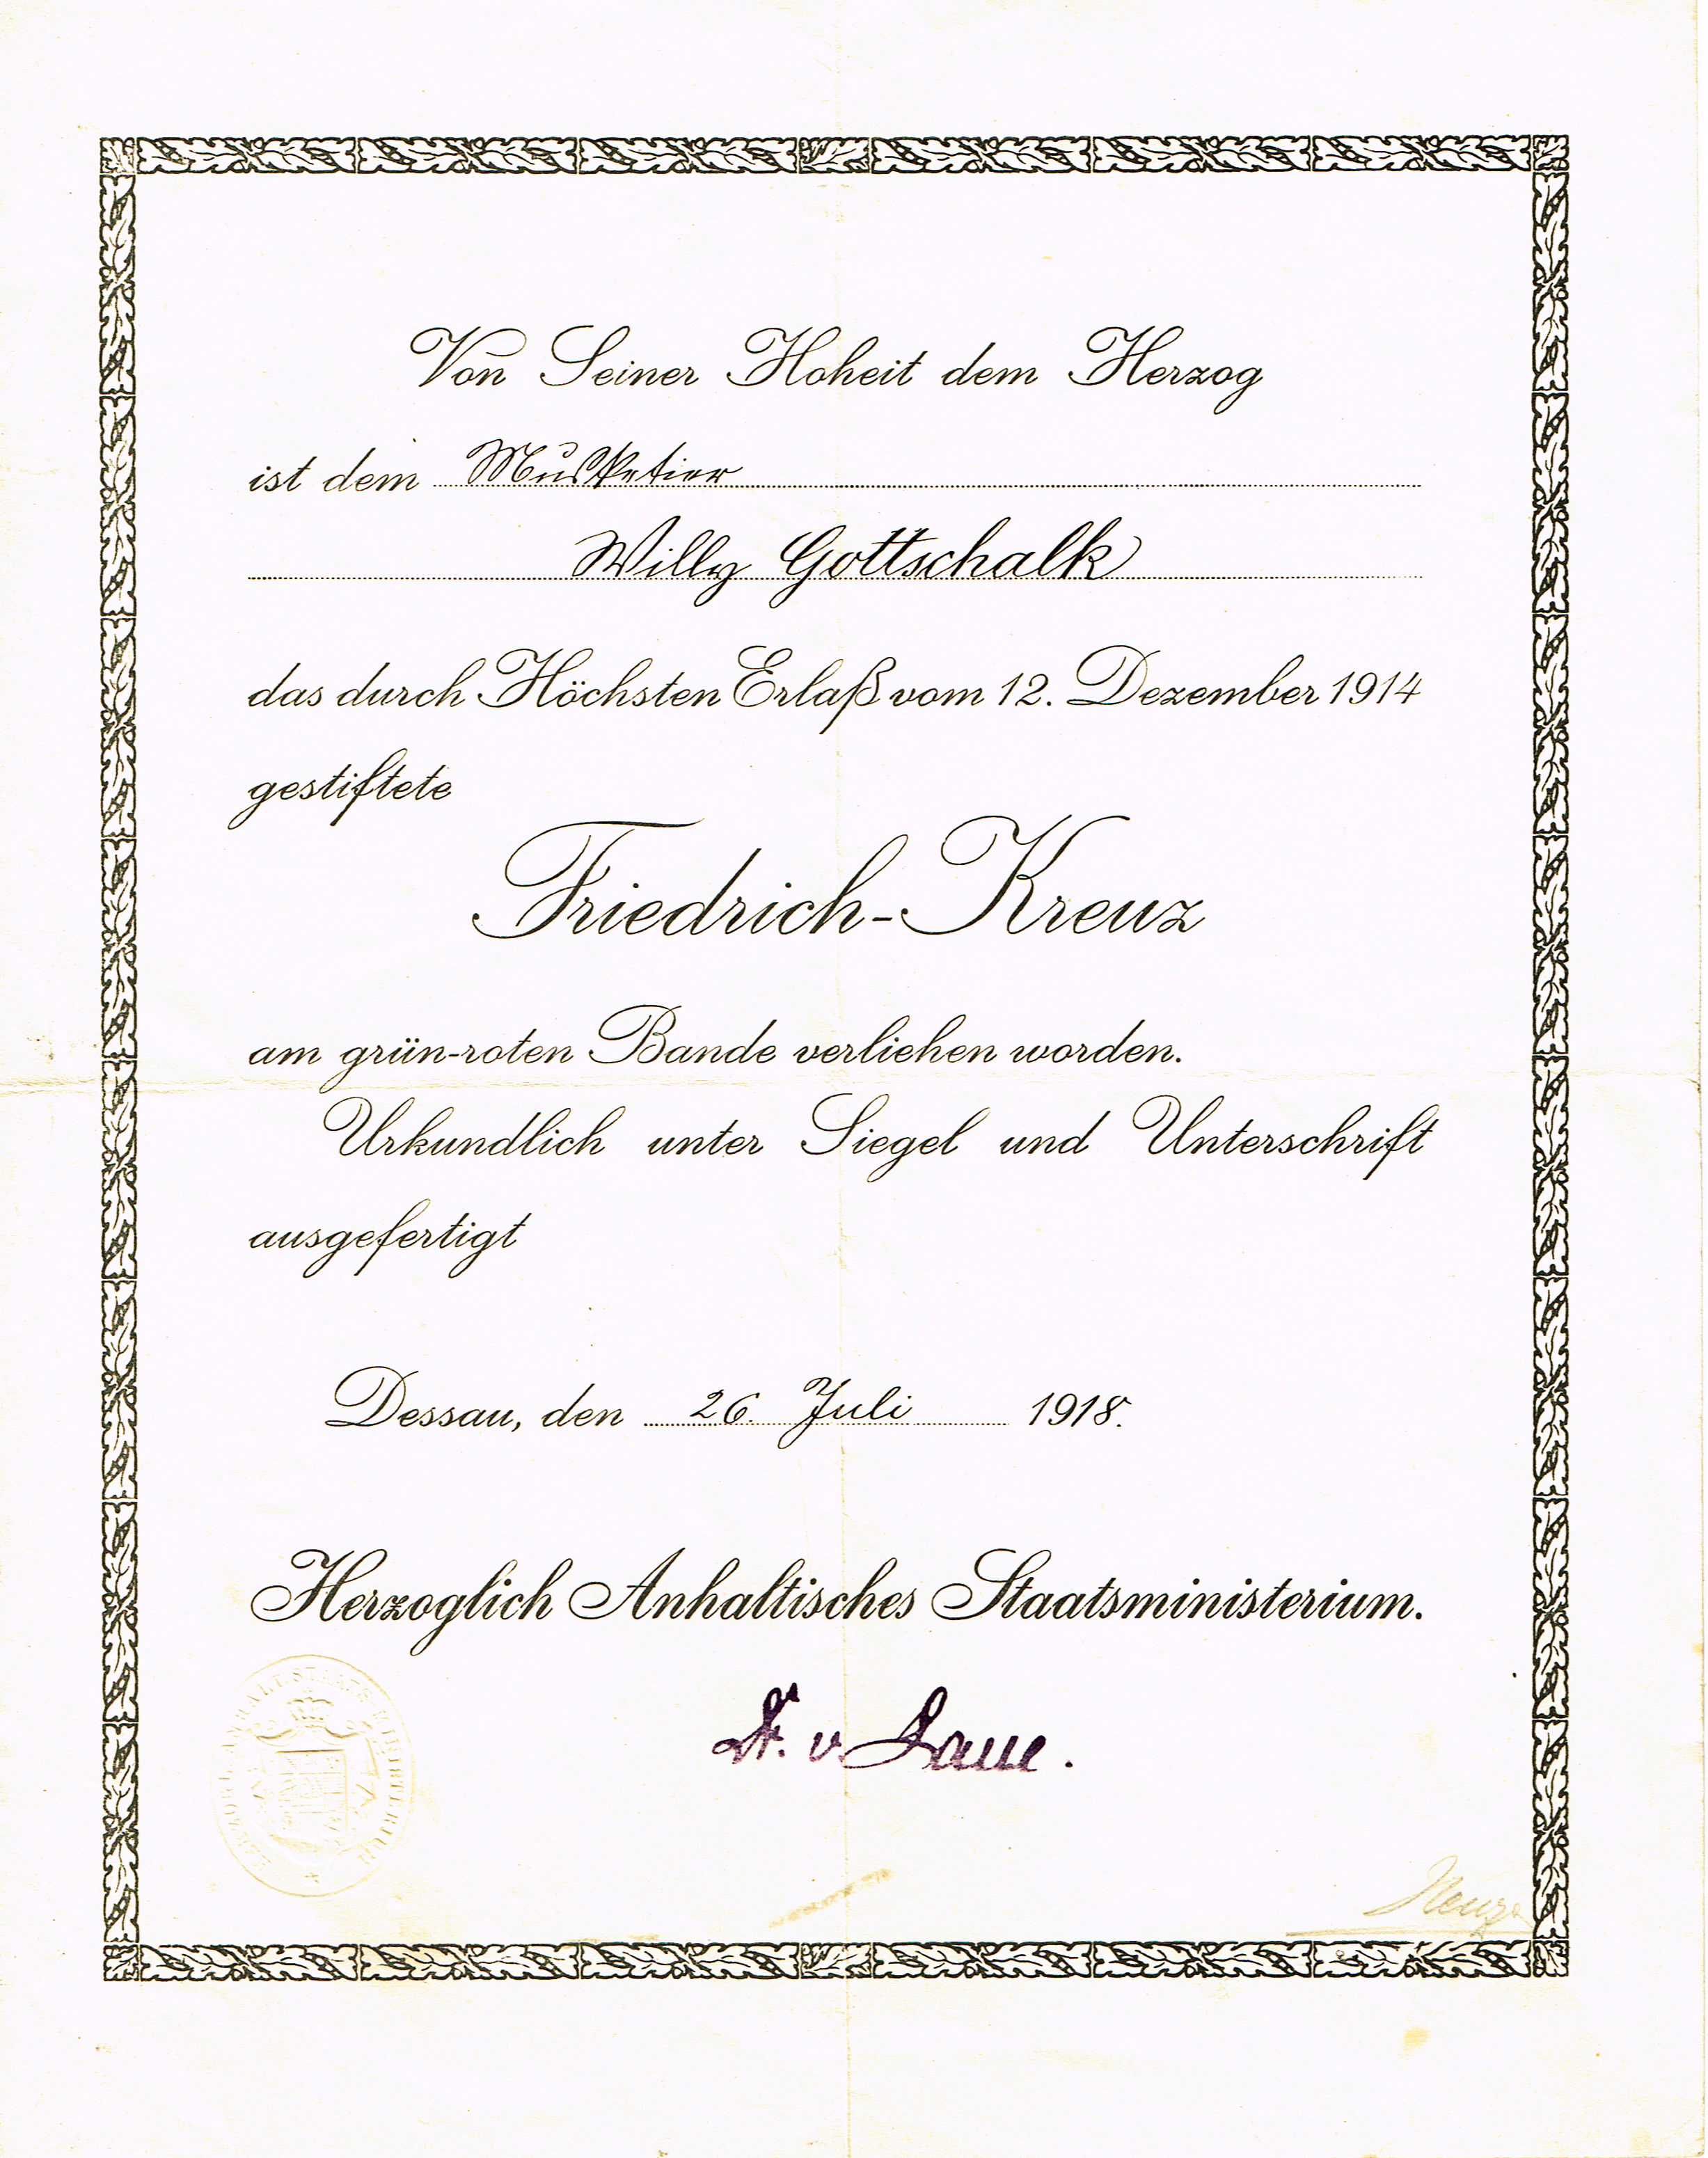 Von Seiner Hoheit dem Herzog
ist dem Musketier
Willy Gottschalk
das durch Höchsten Erlaß vom 12. Dezember 1914
gestiftete
Friedrich-Kreuz
am grün-roten Bande verliehen worden.
Urkundlich unter Siegel und Unterschrift
ausgefertigt
Dessau, den 26. Juli 1918.
Herzoglich Anhaltisches Staatsministerium.
v. Laue.